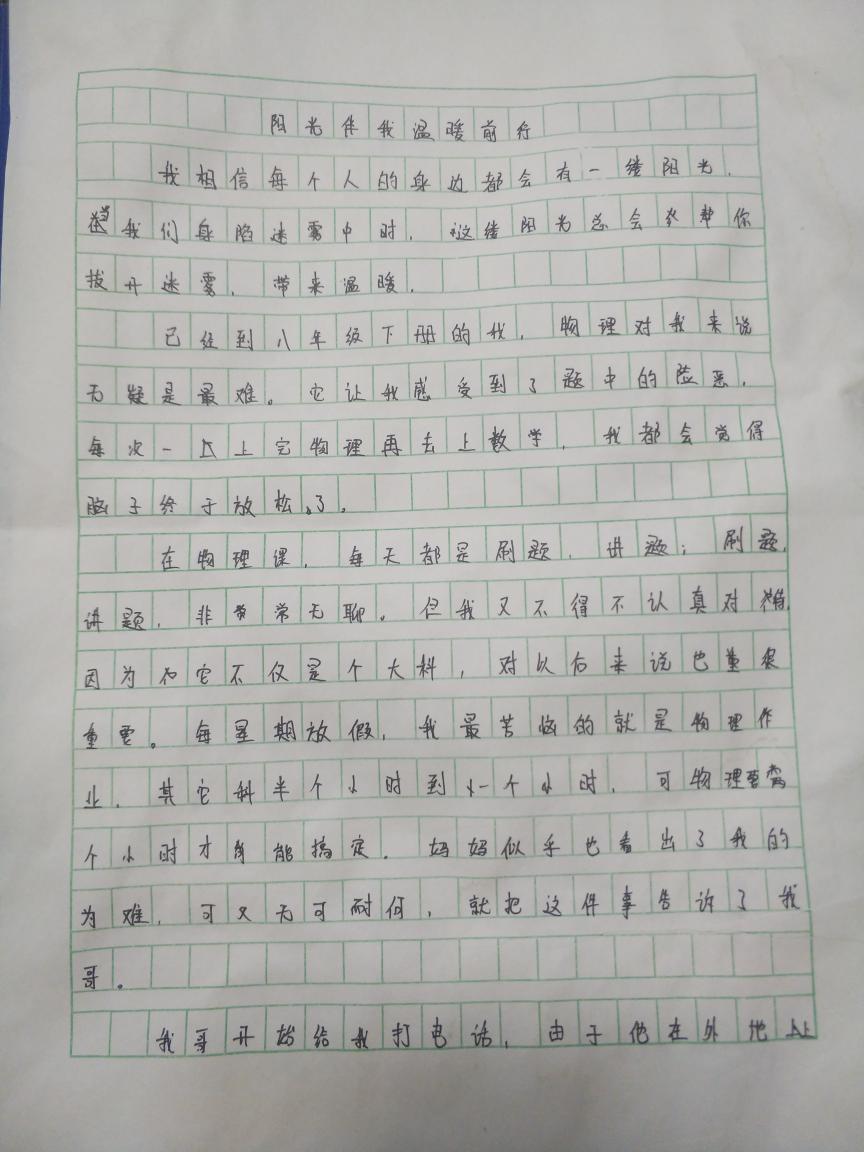 阳光伴我温暖前行
我相信每个人的身边都会有一缕阳光.
当我们身陷迷雾中时，这缕阳光总会来帮你
拔开迷雾，带来温暖.
已经到八年级下册的我，物理对我来说
无疑是最难。它让我感受到了题中的险恶，
每次一上完物理再去上数学，我都会觉得
脑子终于放松了。
在物理课，每天都是刷题、讲题；刷题、
讲题，非常无聊。但我又不得不认真对待，
因为它不仅是个大科，对以后来说也很
重要。每星期放假，我最苦恼的就是物理作
业，其它科半个小时到一个小时，可物理要两
个小时才能搞定. 妈妈似乎也看出了我的
为难，可又无可耐何，就把这件事告诉了我
哥。
我哥开始给我打电话，由于他在外地上